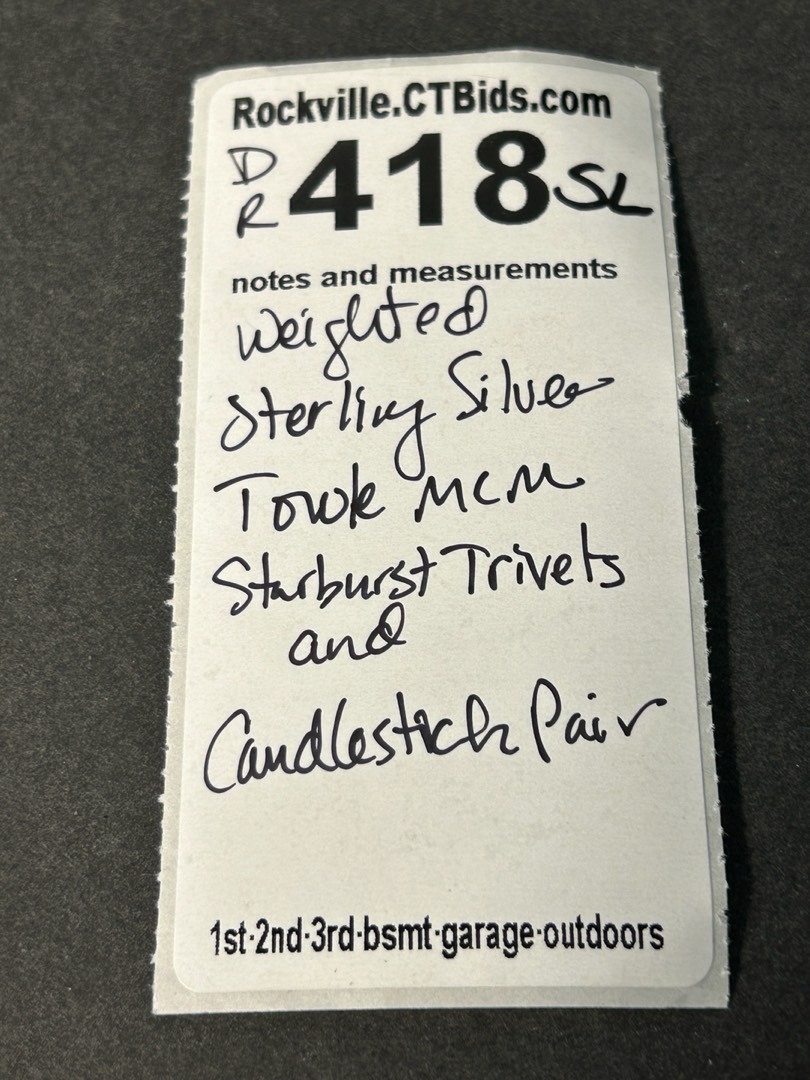 Rockville.CTBids.com
DR 418 SL
notes and measurements
Weighted
Sterling Silver
Towle MCM
Starburst Trivets
and
Candlestick Pair
1st·2nd·3rd·bsmt·garage·outdoors